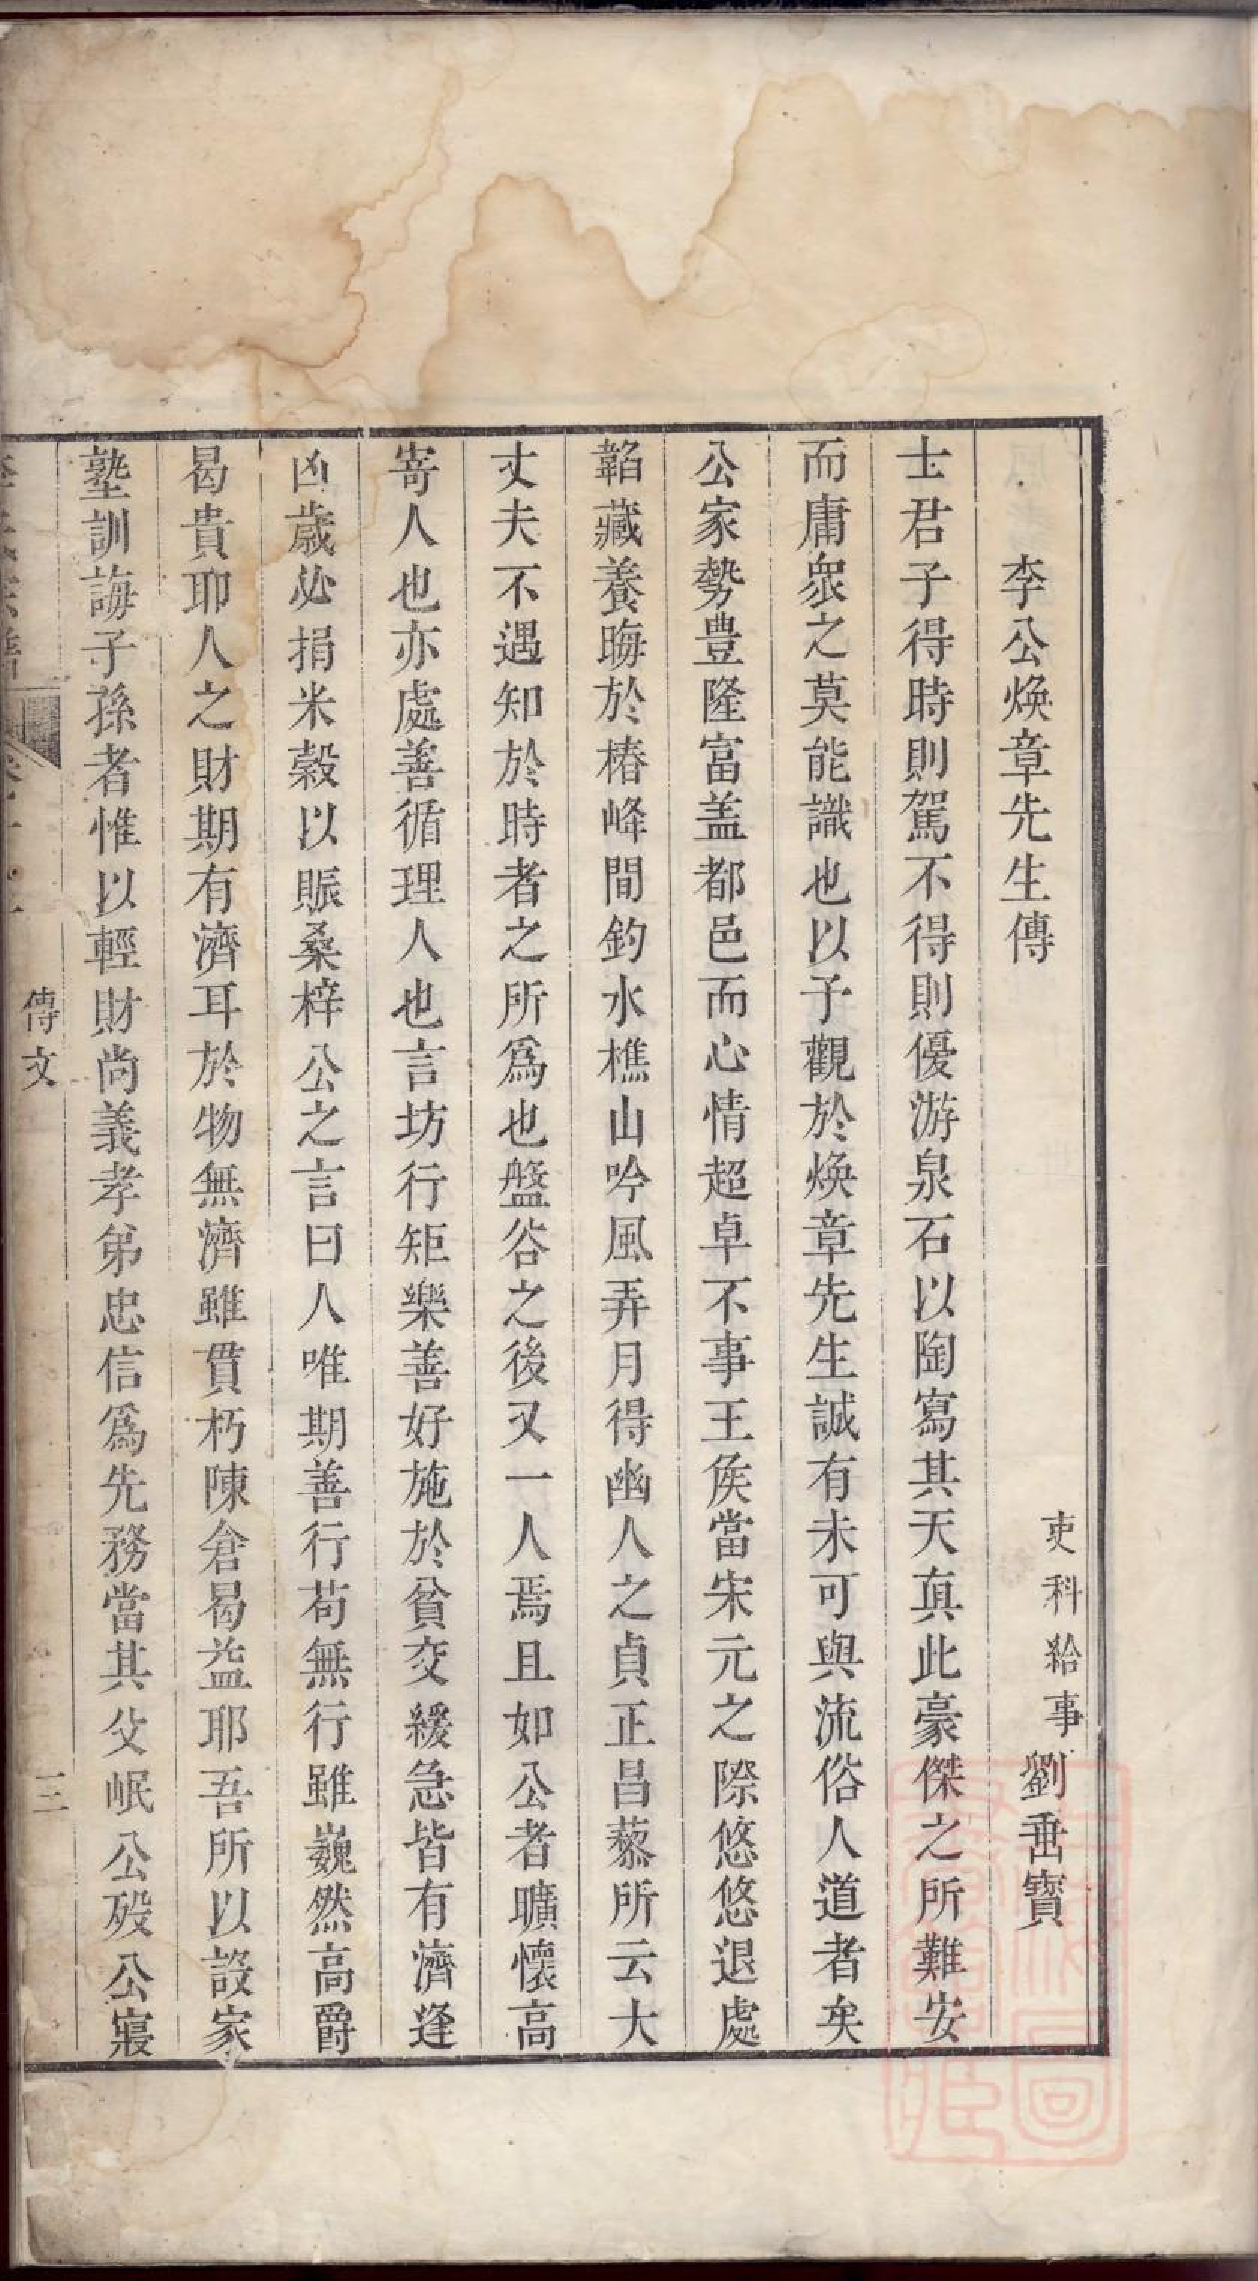 李公煥章先生傳
吏科給事劉垂寶
士君子得時則駕不得則優游泉石以陶寫其天眞此豪傑之所難安
而庸衆之莫能識也以予觀於煥章先生誠有未可與流俗人道者矣
公家勢豐隆富盖都邑而心情超卓不事王侯當宋元之際悠悠退處
韜藏養晦於椿峰間釣水樵山吟風弄月得幽人之貞正昌黎所云大
丈夫不遇知於時者之所爲也盤谷之後又一人焉且如公者曠懷高
寄人也亦處善循理人也言坊行矩樂善好施於貧交緩急皆有濟逢
凶歲必捐米穀以賑桑梓公之言曰人唯期善行苟無行雖巍然高爵
曷貴耶人之財期有濟耳於物無濟雖貫朽陳倉曷益耶吾所以設家
塾訓誨子孫者惟以輕財尚義孝弟忠信爲先務當其父岷公殁公寢
傳文
三